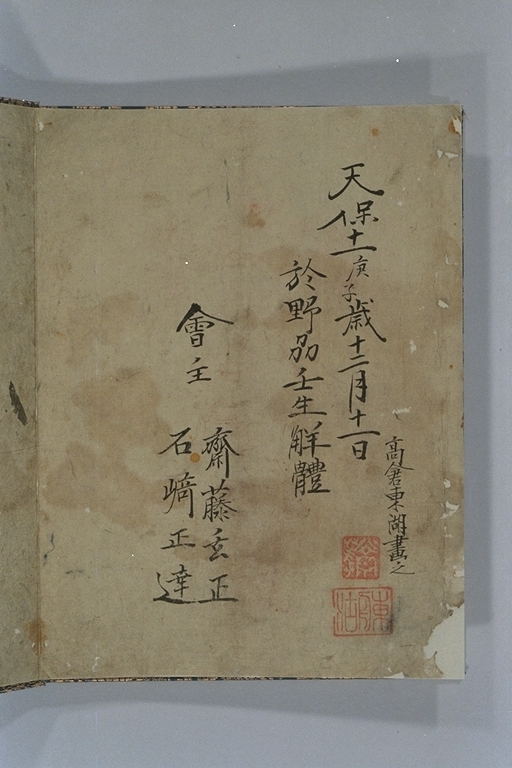 高倉東湖畫之
天保十一庚子歳十二月十一日
於野刕壬生觧體
會主
齋藤玄正
石﨑正達